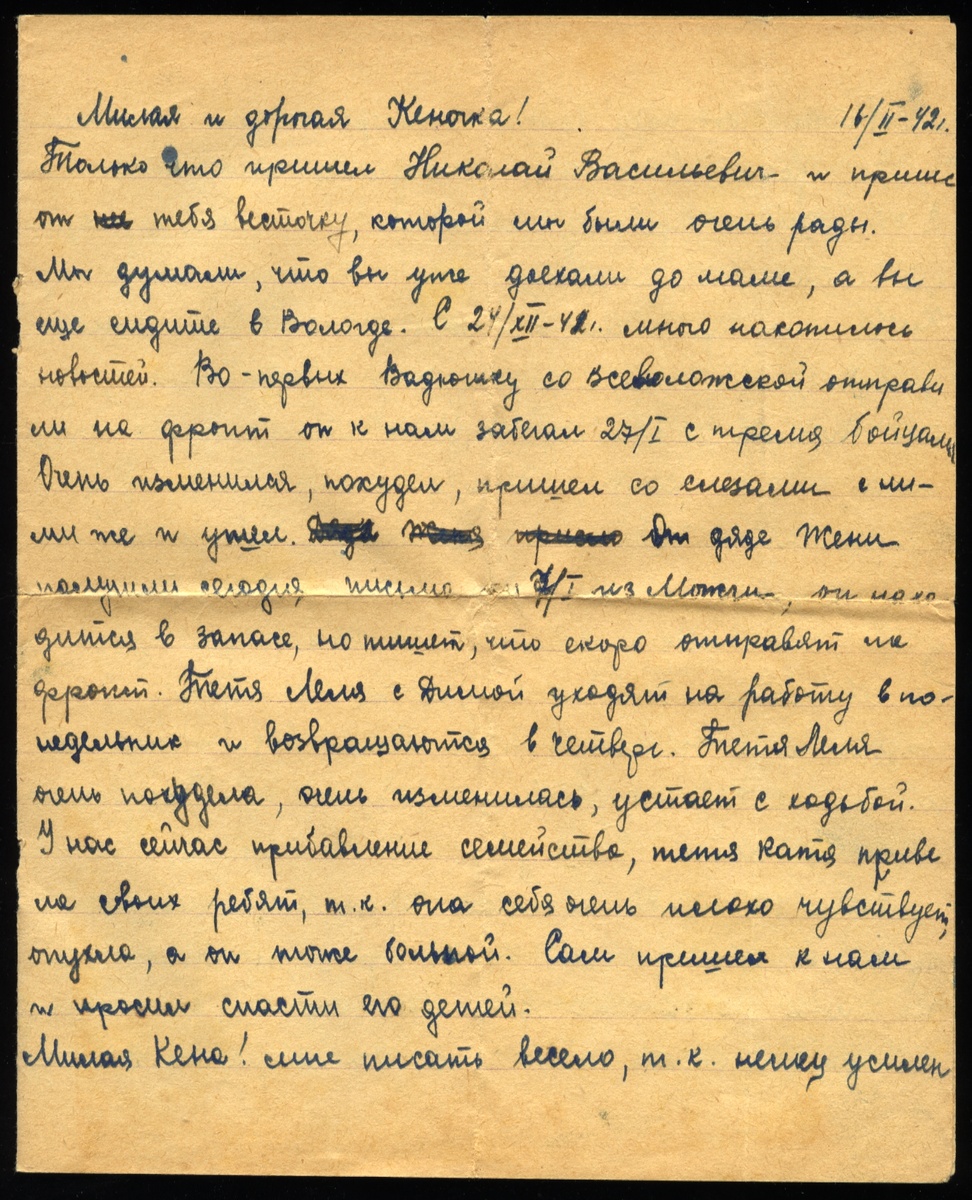 Милая и дорогая Кеночка! 16/II-42г.
Только что пришел Николай Васильевич и принес
от тебя весточку, которой мы были очень рады.
Мы думали, что вы уже доехали до мамы, а вы
еще сидите в Вологде. С 24/XII-42г. много накопилось
новостей. Во-первых Вадюшку со Всеволожской отправи
ли на фронт он к нам забегал 27/I с тремя бойцами
Очень изменился, похудел, пришел со слезами с ни-
ми же и ушел. От дяде Жени
получили сегодня письма от 7/I из Можги, он нахо
дится в запасе, но пишет, что скоро отправят на
фронт. Тетя Леля с Димой уходят на работу в по-
недельник и возвращаются в четверг. Тетя Леля
очень похудела, очень изменилась, устает с ходьбой.
У нас сейчас прибавление семейства, тетя Катя приве
ла своих ребят, т.к. она себя очень плохо чувствует,
опухла, а он тоже больной. Сам пришел к нам
и просил спасти его детей.
Милая Кена! мне писать весело, т.к. усилен